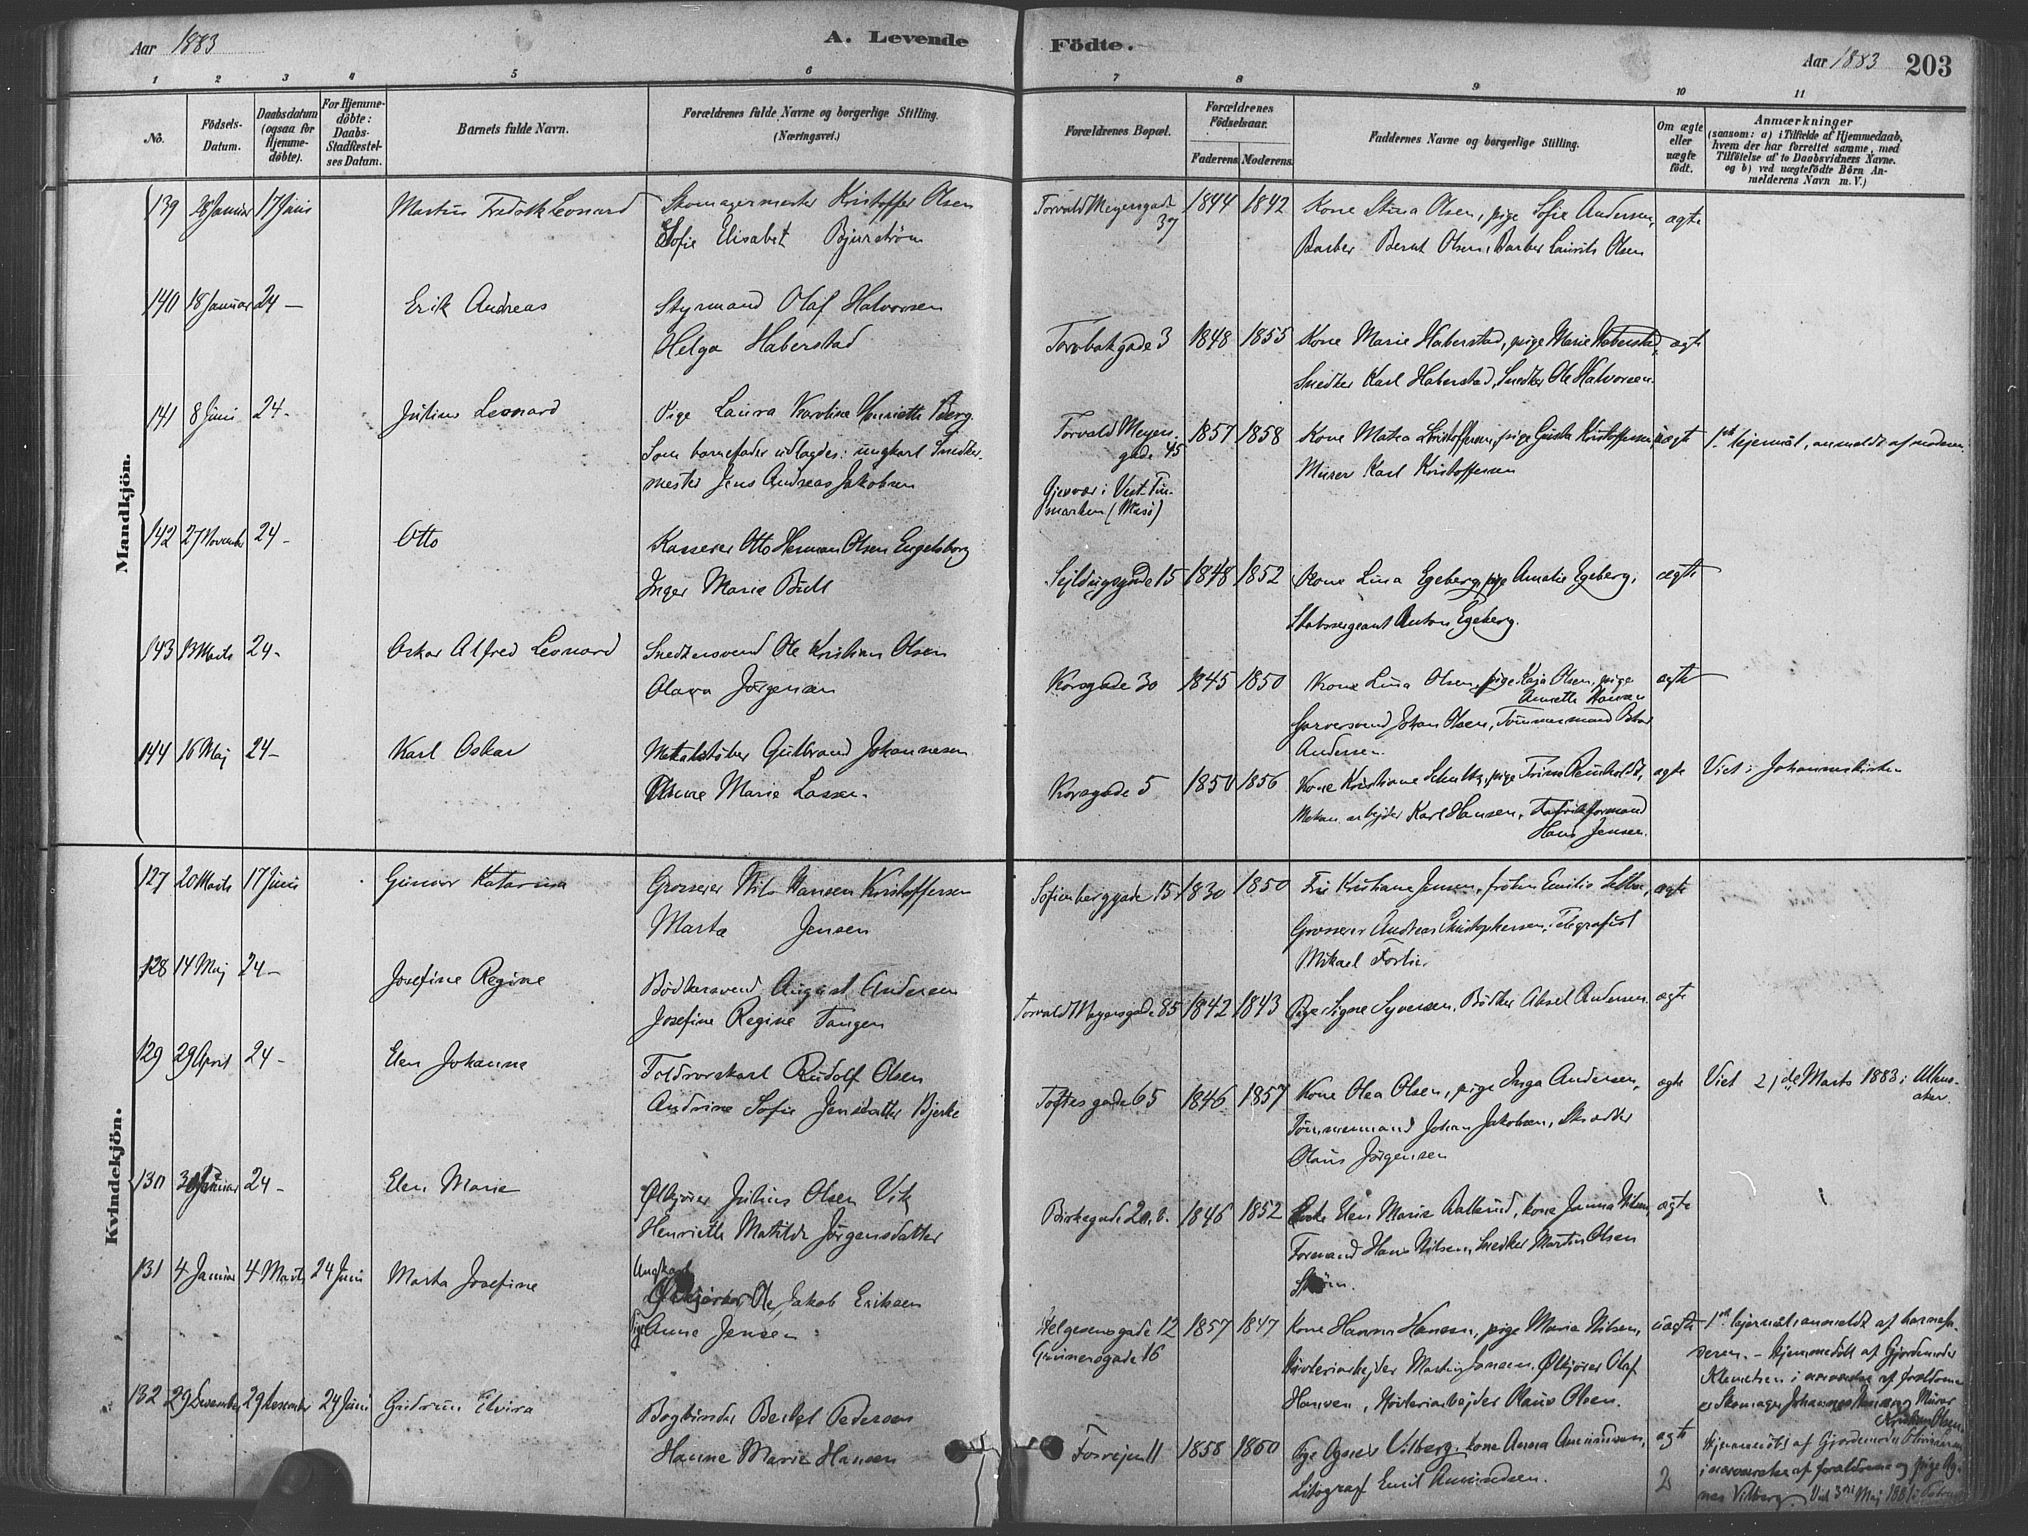 Aar 1883
A. Levende Födte.
Aar 1883 203
1 2 3 4 5 6 7 8 9 10 11
No.
Födsels-
Datum.
Daabsdatum
(ogsaa for
Hjemme-
döbte).
For Hjemme-
döbte:
Daabs-
Stadfæstel-
ses Datum.
Barnets fulde Navn.
Forældrenes fulde Navne og borgerlige Stilling.
(Næringsvei.)
Forældrenes Bopæl.
Forældrenes
Födselsaar.
Faderens. Moderens.
Faddernes Navne og borgerlige Stilling.
Om ægte
eller
uægte
födt.
Anmærkninger
(saasom: a) i Tilfælde af Hjemmedaab,
hvem der har forrettet samme, med
Tilföielse af to Daabsvidners Navne.
og b) ved uægtefödte Börn An-
melderens Navn m. V.)
Mandkjön.
139 28 Januar 17 Juni Martin Fredrik Leonard Skomagermester Kristoffer Olsen Torvald Meyersgade 1844 1842 Kone Stina Olsen, pige Sofie Andersen, ægte
Sofie Elisabet Bjurstrøm 37 Barber Bernt Olsen, Barber Laurits Olsen
140 18 Januar 24 — Erik Andreas Styrmand Olaf Halvorsen
Helga Haberstad Torvbakgade 3 1848 1855 Kone Marie Haberstad, pige Marie Haberstad, ægte
Snedker Karl Haberstad, Snedker Ole Halvorsen.
141 8 Juni 24 - Julius Leonard Pige Laura Karoline Henriette Berg. Torvald Meyers 1857 1858 Kone Matea Kristoffersen, pige Kristoffersen, uægte 1ste lejermål, anmeldt af moderen.
Som barnefader udlagdes: ungkarl Snedker- gade 45 Murer Karl Kristoffersen
mester Jens Andreas Jakobsen Gjesvær i Vest-Fin-
marken (Masö)
142 27 November 24 - Otto Kasserer Otto Herman Olsen Engelsborg
Inger Marie Bull Sejldugsgade 15 1848 1852 Kone Lina Egeberg, pige Amalie Egeberg, ægte
Stabssergeant Anton Egeberg.
143 13 Marts 24 - Oskar Alfred Leonard Snedkersvend Ole Kristian Olsen
Olava Jørgensen Korsgade 30 1845 1850 Kone Lina Olsen, pige Kaja Olsen, pige ægte
Annette Hansen
Garversvend Johan Olsen, Tömmermand
Andersen.
144 16 Maj 24 - Karl Oskar Metalstöber Gulbrand Johannesen
Anne Marie Lassen. Korsgade 5 1850 1856 Kone Kristiane Schultz, pige Reinholdt, ægte Viet i Johanneskirken
Mekan. arbejder Karl Hansen, Fabrikformand
Hans Jensen.
Kvindekjön.
127 20 Marts 17 Juni Gunvor Katarina Grosserer Nils Hansen Kristoffersen Sofienberggade 15 1830 1850 Fru Kristiane Jensen, frøken Emilie ægte
Marta Jensen Grosserer Andreas Christophersen, Telegrafist
Mikael
128 14 Maj 24 - Josefine Regine Bödkersvend August Andersen Torvald Meyersgade 85 1842 1843 Pige Signe Syversen, Bödker Aksel Andersen. ægte
Josefine Regine Tangen
129 29 April 24 - Elen Johanne Toldrorskarl Rudolf Olsen
Andrine Sofie Jensdatter Bjerke Toftesgade 65 1846 1857 Kone Olea Olsen, pige Inga Andersen, ægte Viet 21de Marts 1883 i Ullens-
aker.
Tömmermand Johan Jakobsen, Skrædder
Olaus Jørgensen
130 30 Januar 24 - Elen Marie Ølkjører Julius Olsen Vik
Henriette Matilde Jørgensdatter Birkegade 20.b. 1846 1852 Enke Elen Marie Aallerud, kone Janna Nilsen, ægte
Formand Hans Nilsen, Snedker Martin Olsen
Strøm.
131 4 Januar 4 Marts 24 Juni Marta Josefine Ungkarl
Ølkjører Ole Jakob Eriksen
Pige Anne Jensen Helgesensgade 12 1857 1847 Kone Hanna Hansen, pige Maria Nilsen, uægte 1ste lejermål, anmeldt af barnefa-
Grünersgade 16 Høvleriarbejder Martin Jansen, Ølkjører Olaf deren. - Hjemmedöbt af Gjordemoder
Hansen, Høvleriarbejder Olaus Olsen. Klemetsen i nærværelse af forældrene
Skomager Johannes Hansen og Murer
Kristian Olsen
132 29 December 29 December 24 Juni Gudrun Elvira Bogbinder Bertel Pedersen
Hanne Marie Hansen Fossvejen 11 1858 1860 Pige Agnes Vilberg, kone Anna Amundsen, ægte Hjemmedöbt af Gjordemoder
Litograf Emil Amundsen. 2 i nærværelse af forældrene og pige Ag-
nes Vilberg. Viet 3die Maj 1881 i